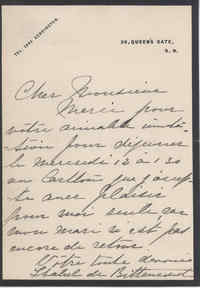 TEL. 1841 KENSINGTON.
39, QUEEN'S GATE,
S. W.
Cher Monsieur
Merci pour
votre aimable invita-
tion pour déjeuner
le mercredi 12 à 1.30
au Carlton que j'accep-
te avec plaisir
pour moi seule car
mon mari n'est pas
encore de retour.
Votre toute dévouée
Isabel de Bittencourt